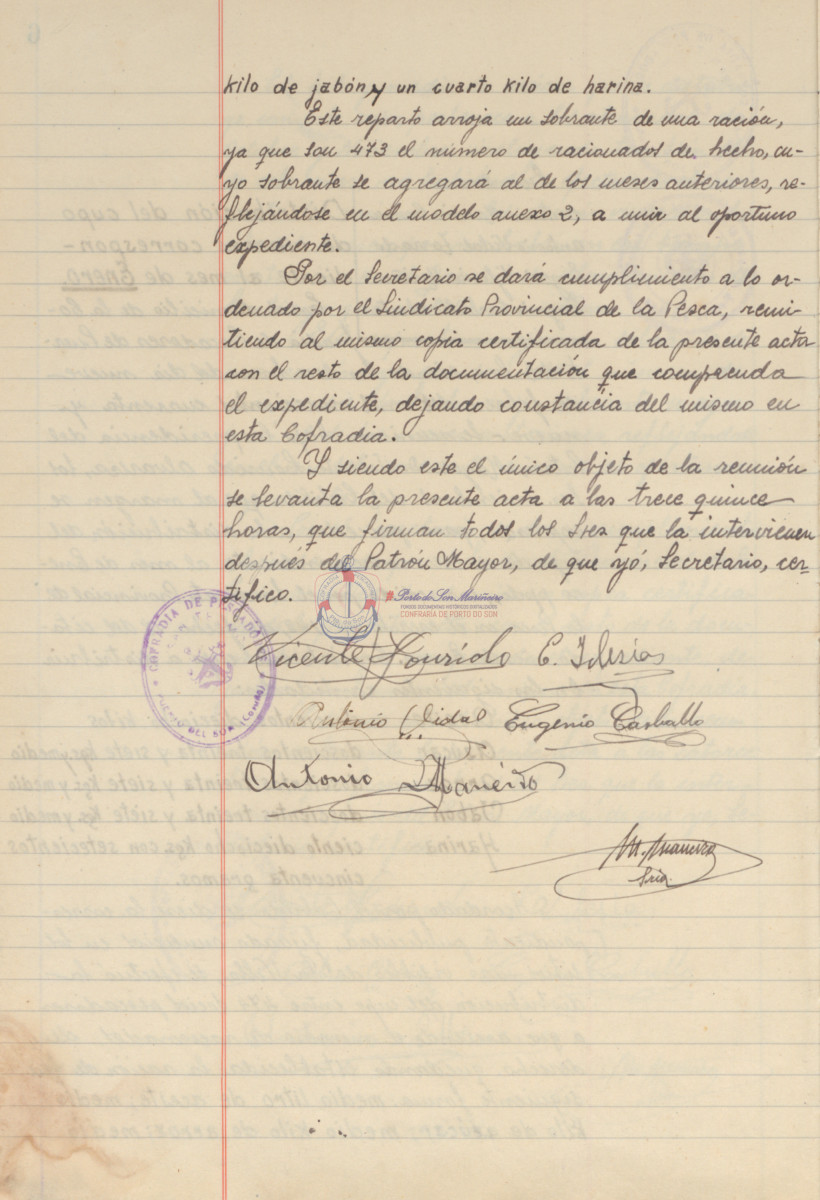 kilo de jabón, y un cuarto kilo de harina.
Este reparto arroja un sobrante de una ración,
ya que son 473 el número de racionados de hecho, cu-
yo sobrante se agregará al de los meses anteriores, re-
flejándose en el modelo anexo 2, a unir al oportuno
expediente.
Por el Secretario se dará cumplimiento a lo or-
denado por el Sindicato Provincial de la Pesca, remi-
tiendo al mismo copia certificada de la presente acta
con el resto de la documentación que comprenda
el expediente, dejando constancia del mismo en
esta Cofradia.
Y siendo este el único objeto de la reunión
se levanta la presente acta a las trece quince
horas, que firman todos los Sres que la intervienen
después del Patrón Mayor, de que yó, Secretario, cer-
tifico.
Porto do Son Mariñeiro
FONDOS DOCUMENTAIS HISTÓRICOS DIXITALIZADOS
CONFRARÍA DE PORTO DO SON
COFRADIA DE PESCADORES
PUERTO DEL SON (Coruña)
Vicente C. Iglesias
Antonio Vidal Eugenio Carballo
Antonio